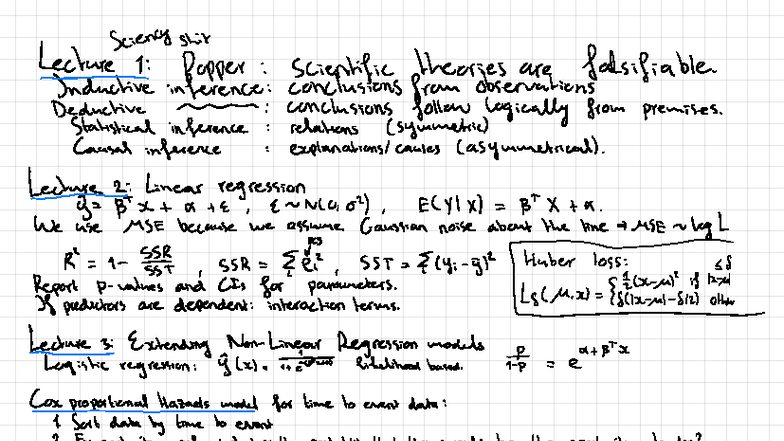 Sciency shit
Lecture 1: Popper: scientific theories are falsifiable
Inductive inference: conclusions from observations
Deductive : conclusions follow logically from premises.
Statistical inference : relations (symmetric)
Causal inference : explanations/causes (asymmetrical).
Lecture 2: Linear regression
y = βᵀx + α + ε, ε ~ N(0, σ²), E(Y|X) = βᵀX + α.
We use MSE because we assume Gaussian noise about the line → MSE ~ log L
R² = 1 - SSR/SST, SSR = Σ eᵢ², SST = Σ(yᵢ - ȳ)²
Huber loss:
Lδ(μ, x) = { ½(x-μ)² if |x-μ| ≤ δ
δ(|x-μ| - δ/2) other
Report p-values and CIs for parameters.
If predictors are dependent: interaction terms.
Lecture 3: Extending Non-Linear Regression models
Logistic regression: ŷ(x) = likelihood based. p/1-p = e^(α+βᵀx)
Cox proportional Hazards model for time to event data:
1 Sort data by time to event